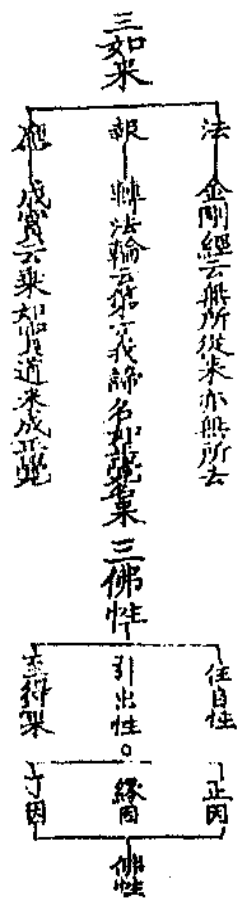 三如来
法 金剛經云無所從来亦無所去
報 轉法輪云第一義諦名如正覺名来
應 成實云乗如實道来成正覺
三佛性
住自性 正因
引出性。 緣因
至得果 了因
佛性